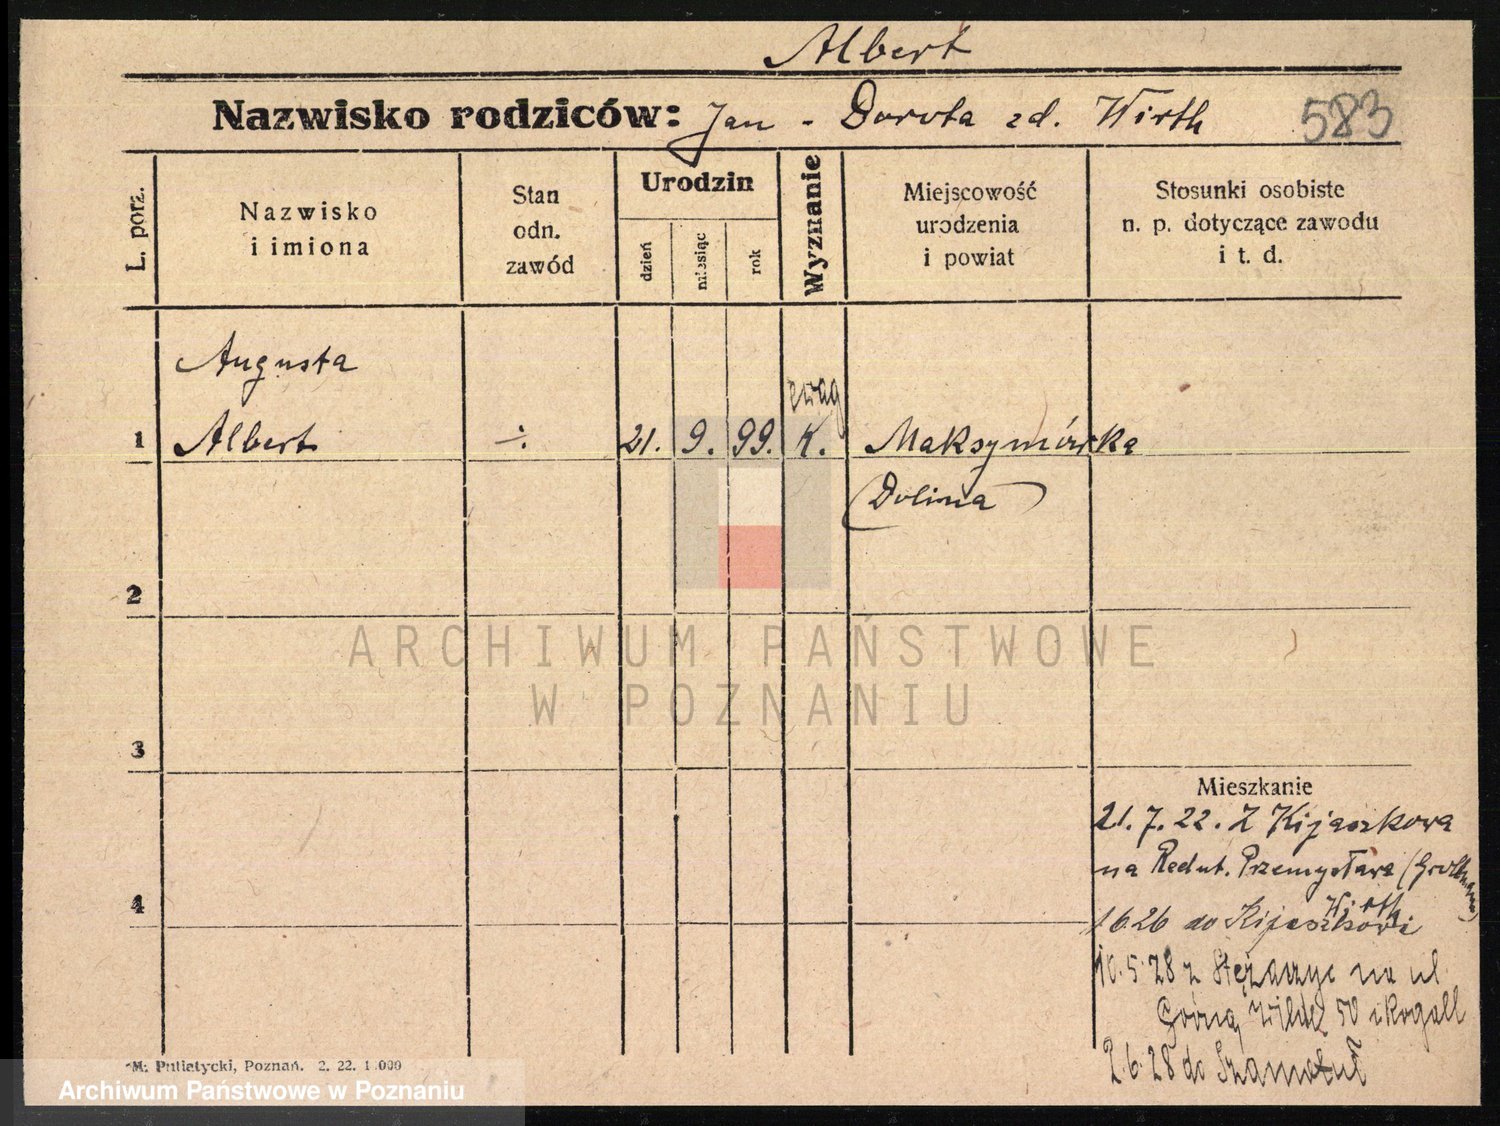 Albert
Nazwisko rodziców: Jan - Dorota zd. Wirth 583
L. porz.
Nazwisko
i imiona
Stan
odn.
zawód
Urodzin
dzień
miesiąc
rok
Wyznanie
Miejscowość
urodzenia
i powiat
Stosunki osobiste
n. p. dotyczące zawodu
i t. d.
Augusta
ewag
1 Albert ÷ 21. 9. 99. K. Maksymówka
(Dolina)
2
ARCHIWUM PAŃSTWOWE
W POZNANIU
3
Mieszkanie
21. 7. 22. Z Kijaszkowa
na Redut. Przemysława
Wirth
4
1 6 26 do Kijaszkowi
10. 5 28 z na ul.
Górną Wildę 50
2. 6. 28 do Szamotuł
M. Putiatycki, Poznań. 2. 22. 1.000
Archiwum Państwowe w Poznaniu